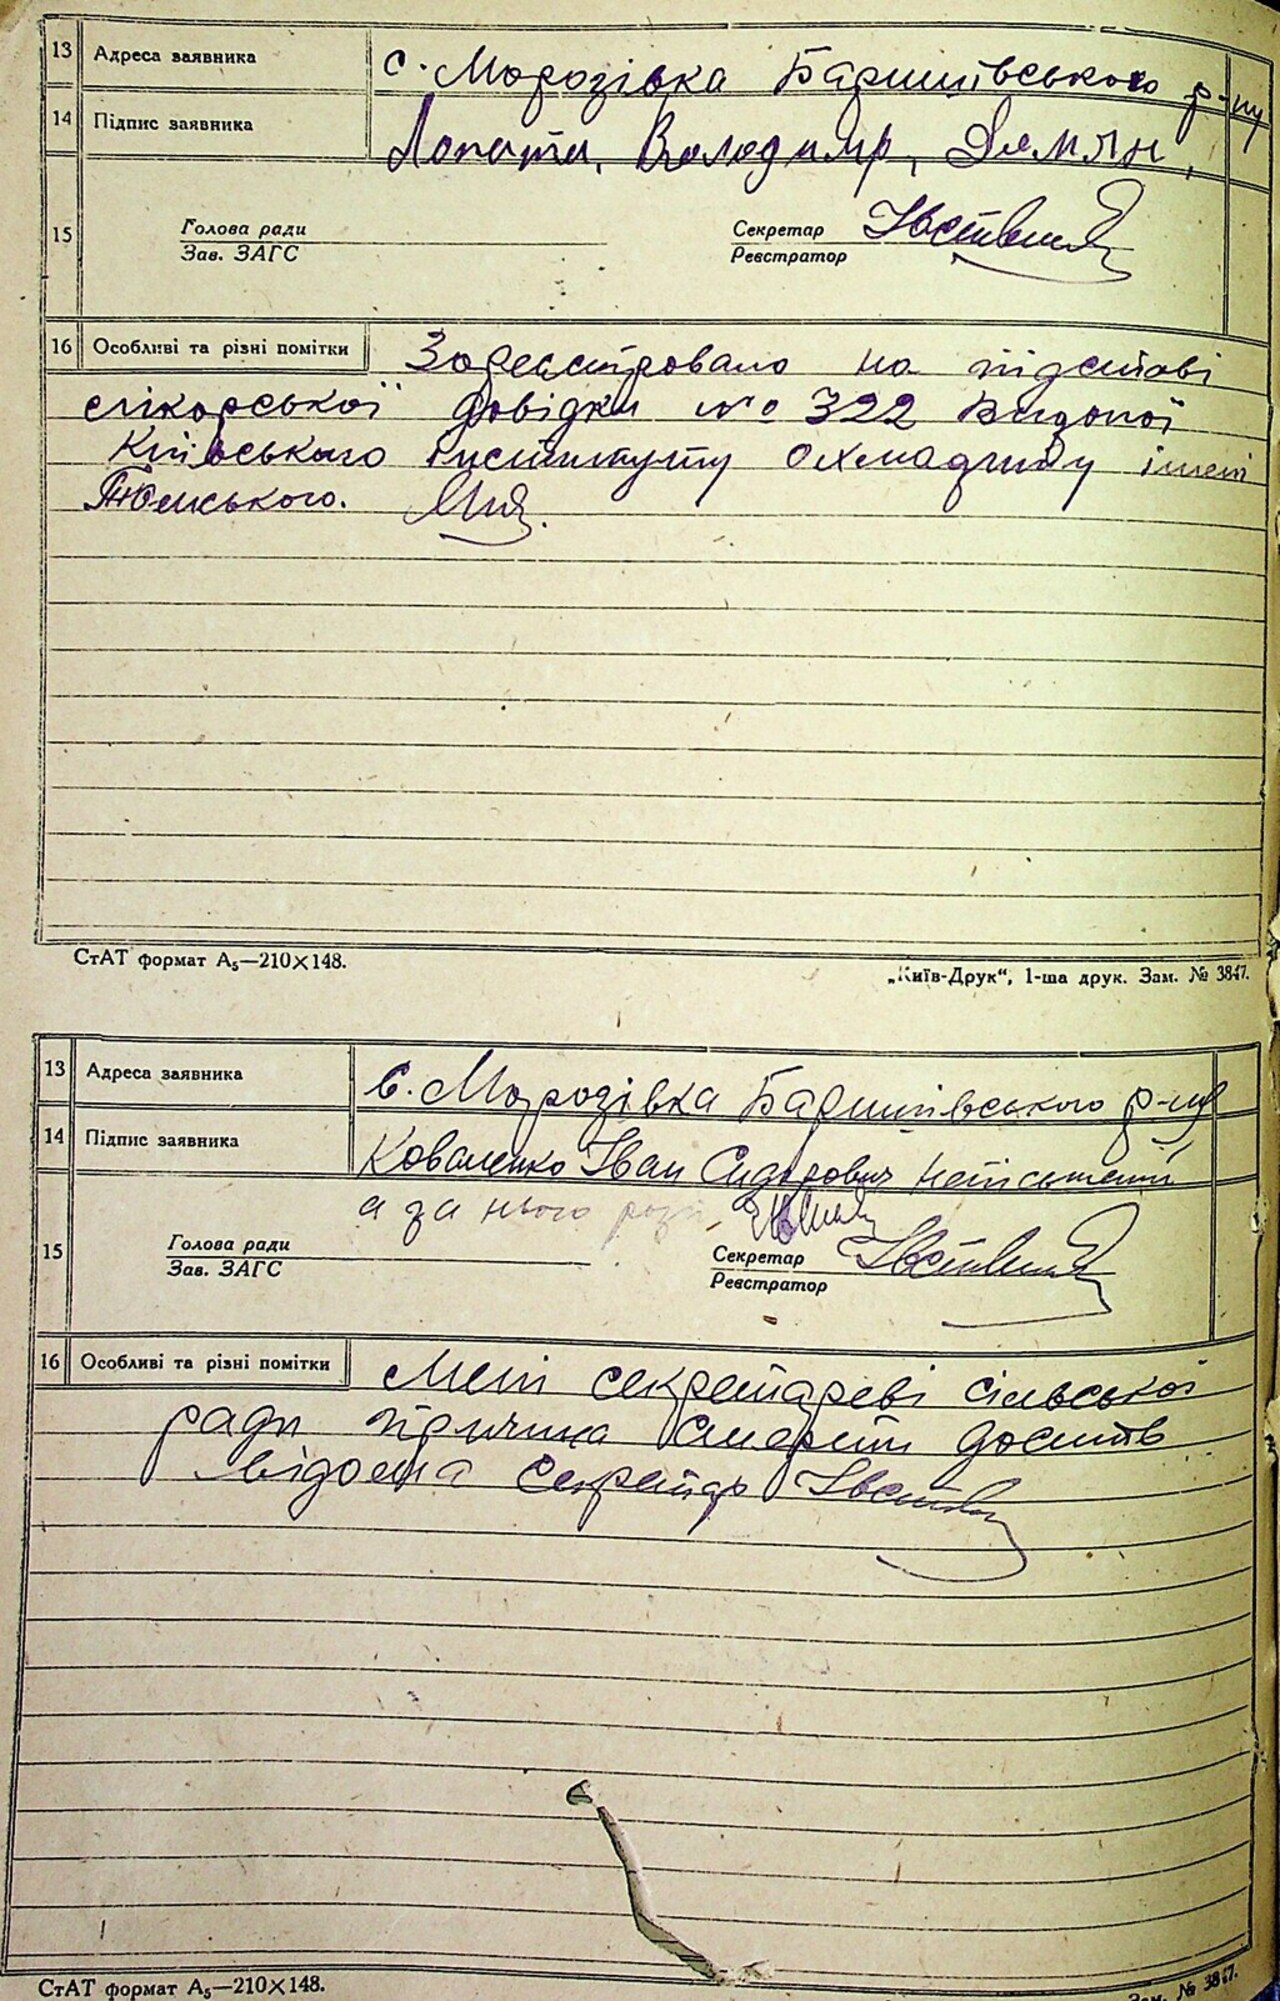 13 Адреса заявника с. Морозівка Баришівського р-ну
14 Підпис заявника Лопата, Володимир, Демян,
15 Голова ради Секретар
Зав. ЗАГС Реєстратор
16 Особливі та різні помітки Зареєстровано на підставі
лікарської довідки № 322 Виданої
Київського інституту охмадиту імені
СтАТ формат А₅—210×148.
„Київ-Друк“, 1-ша друк. Зам. № 3847.
13 Адреса заявника с. Морозівка Баришівського р-ну
14 Підпис заявника Коваленко Іван Сидорович неписьмений
а за нього
15 Голова ради Секретар
Зав. ЗАГС Реєстратор
16 Особливі та різні помітки Мені секретареві сільської
ради причина смерти досить
відома Секретар
СтАТ формат А₅—210×148.
Зам. № 3847.